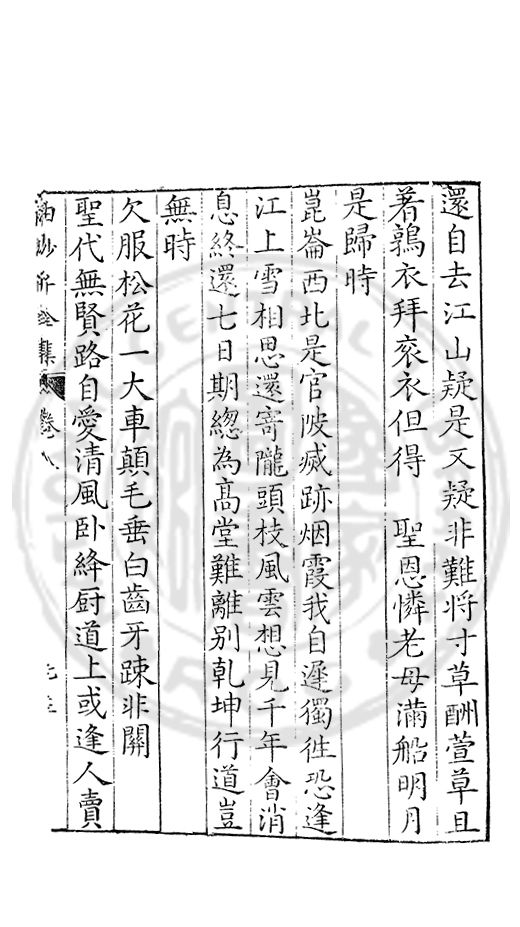 還自去江山疑是又疑非難將寸草酬萱草且
著鶉衣拜衮衣但得　聖恩憐老母滿船明月
是歸時
崑崙西北是官陂瘞跡烟霞我自遲獨徃恐逢
江上雪相思還寄隴頭枝風雲想見千年會消
息終還七日期總為高堂難離别乾坤行道豈
無時
欠服松花一大車顛毛垂白齒牙踈非關
聖代無賢路自愛清風卧絳厨道上或逢人賣